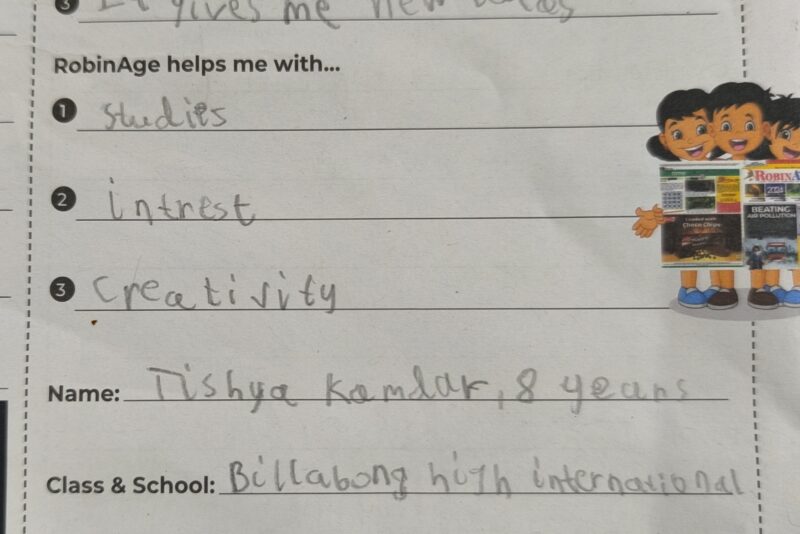 3 It gives me new ideas
RobinAge helps me with...
1 studies
2 intrest
3 creativity
ROBINA
2024
BEATING
AIR POLLUTION
Choco Chips
Name: Tishya Kamdar, 8 years
Class & School: Billabong high international